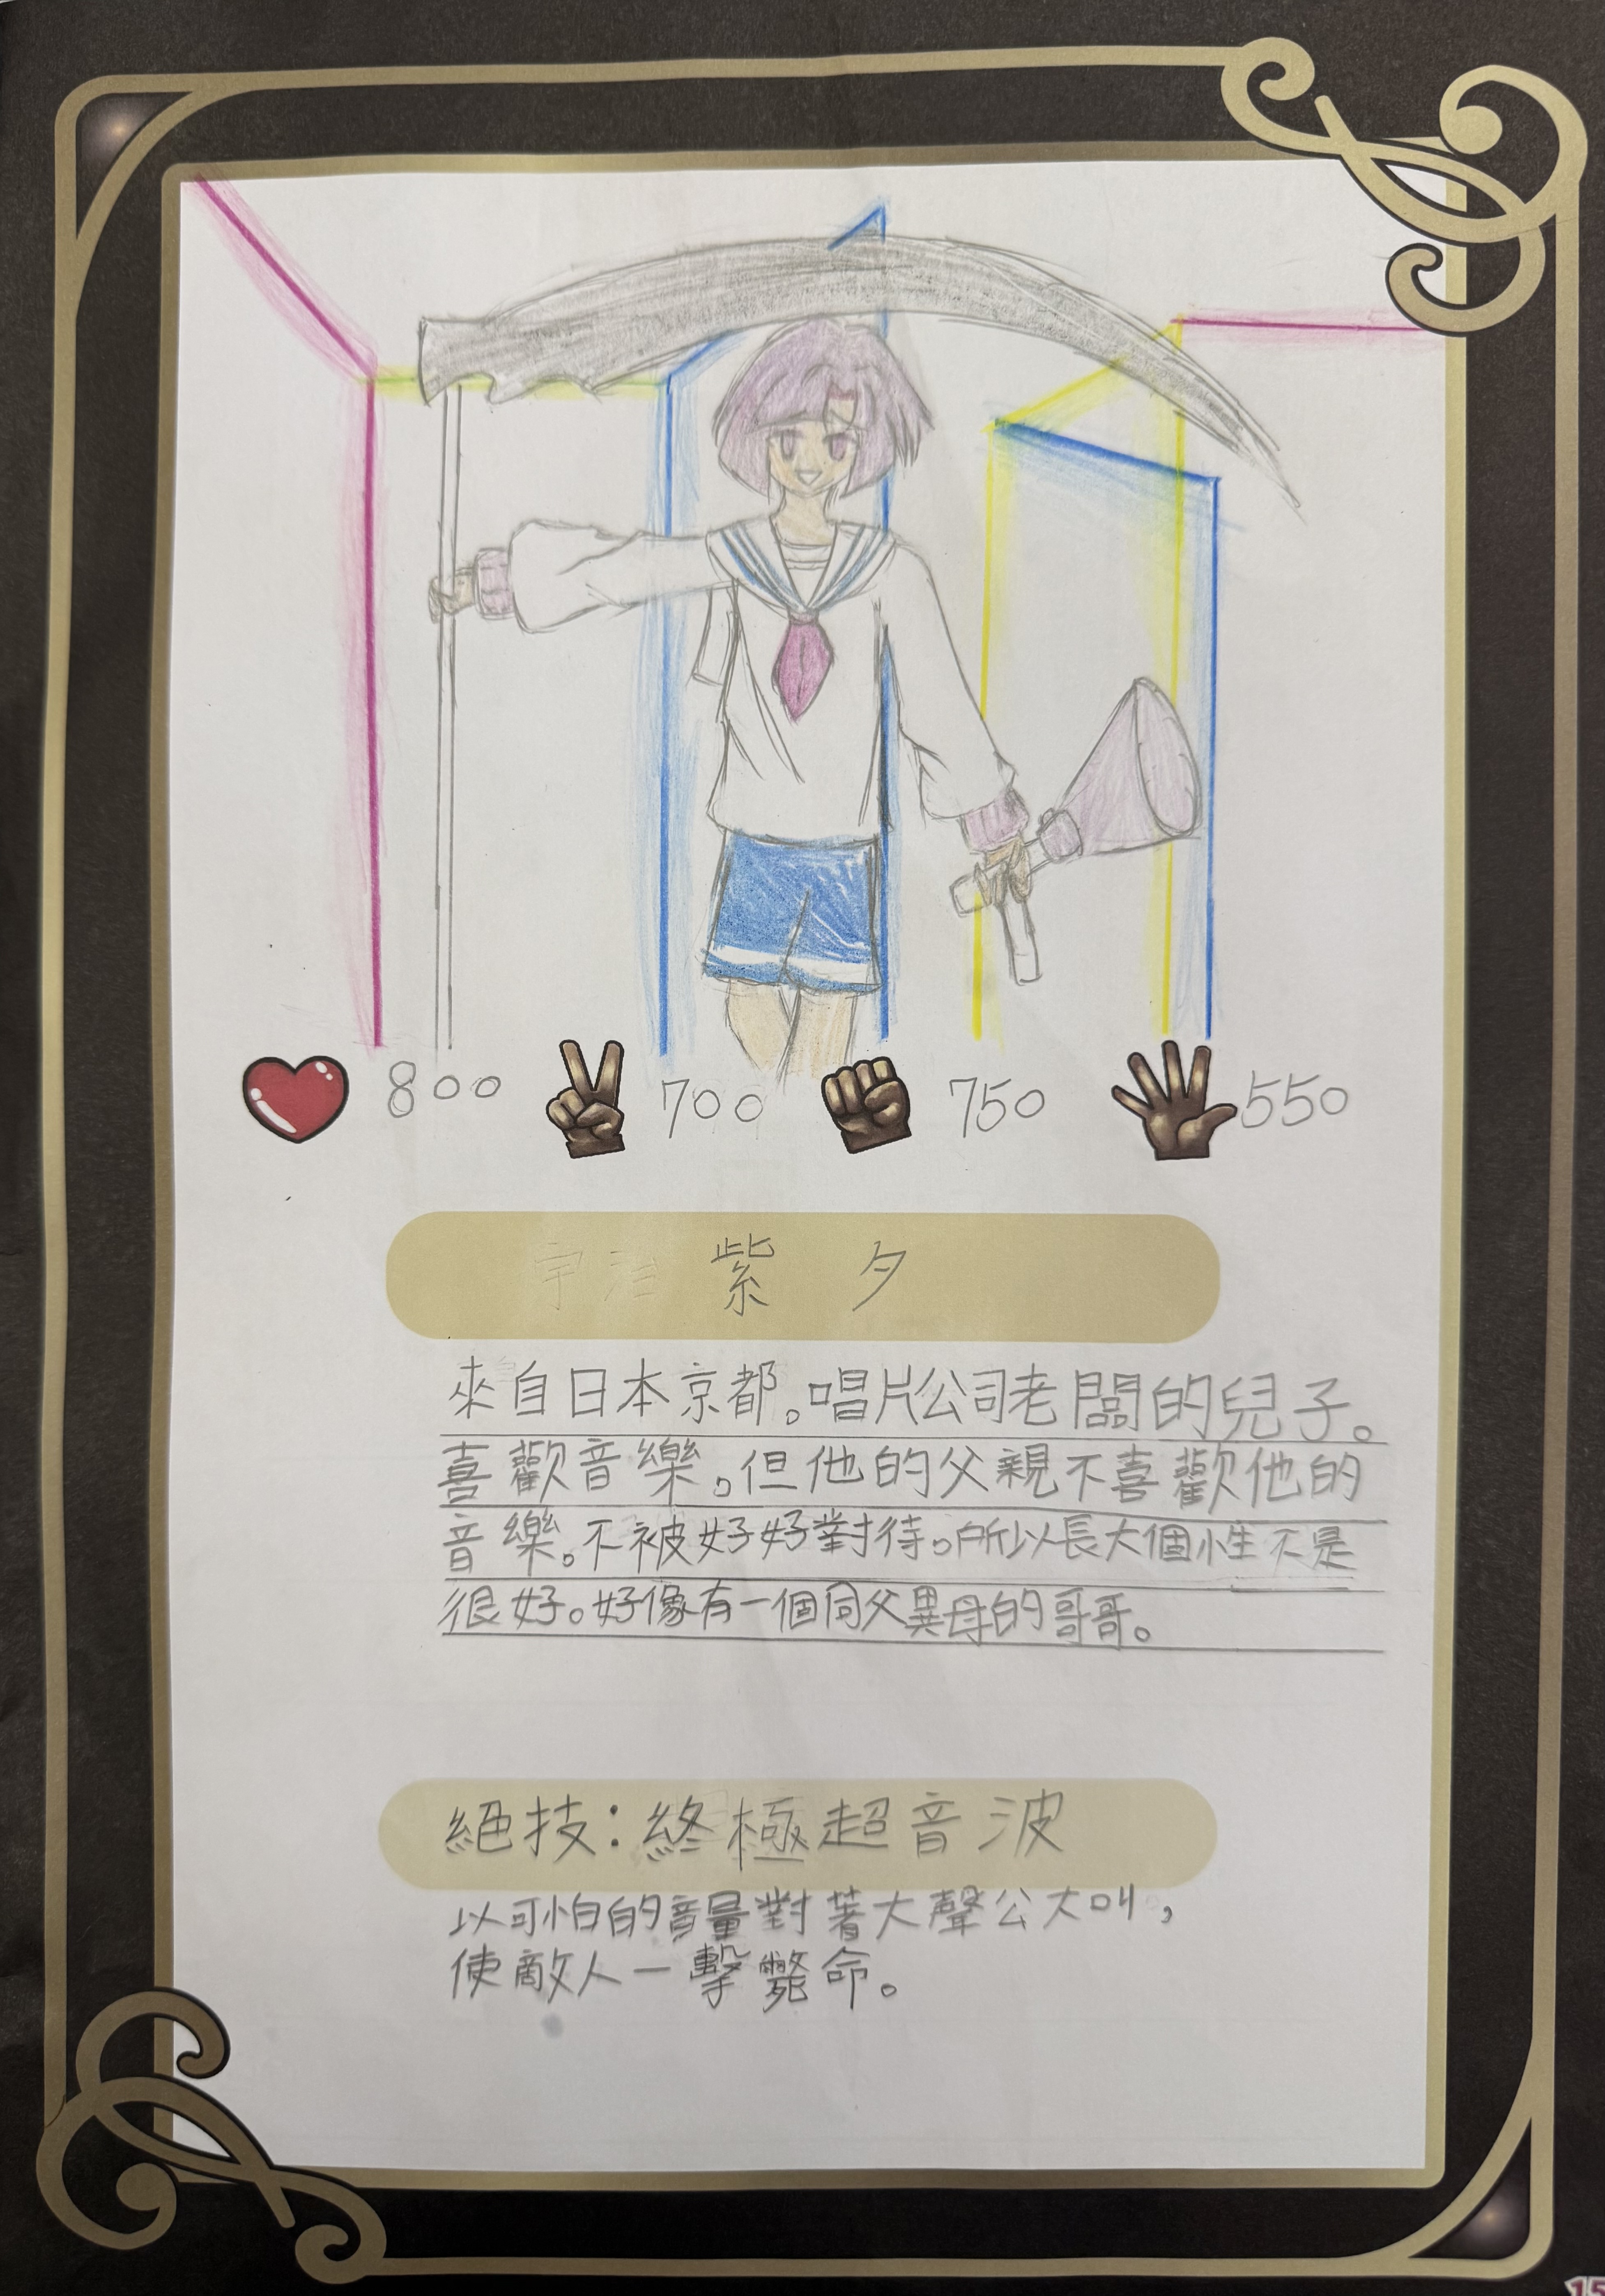 800 700 750 550
宇治 紫 夕
來自日本京都。唱片公司老闆的兒子。
喜歡音樂。但他的父親不喜歡他的
音樂。不被好好對待。所以長大個性不是
很好。好像有一個同父異母的哥哥。
絕技：終極超音波
以可怕的音量對著大聲公大叫，
使敵人一擊斃命。
15